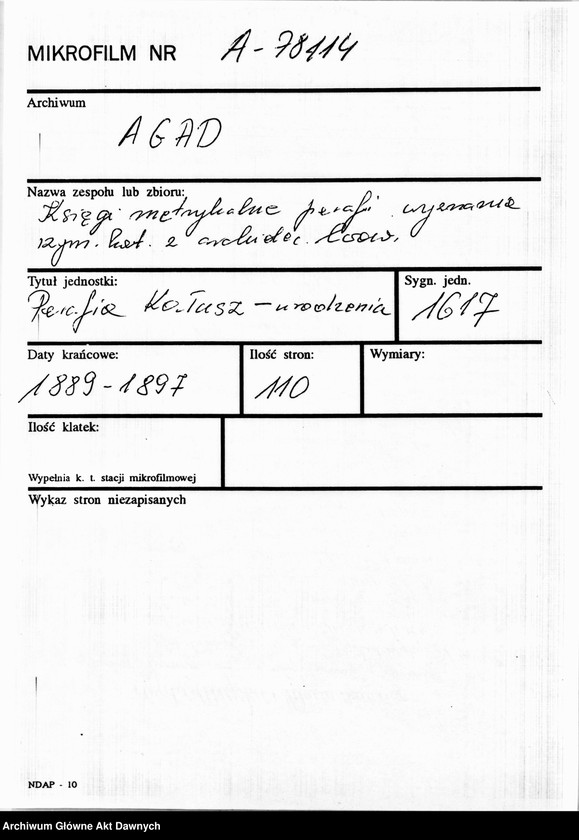 MIKROFILM NR A-78114
Archiwum
AGAD
Nazwa zespołu lub zbioru:
Księgi metrykalne parafii wyznania
rzym. kat. z archidiec. Lwow.
Tytuł jednostki:
Parafia Kałusz - urodzenia
Sygn. jedn.
1617
Daty krańcowe:
1889-1897
Ilość stron:
110
Wymiary:
Ilość klatek:
Wypełnia k. t. stacji mikrofilmowej
Wykaz stron niezapisanych
NDAP - 10
Archiwum Główne Akt Dawnych